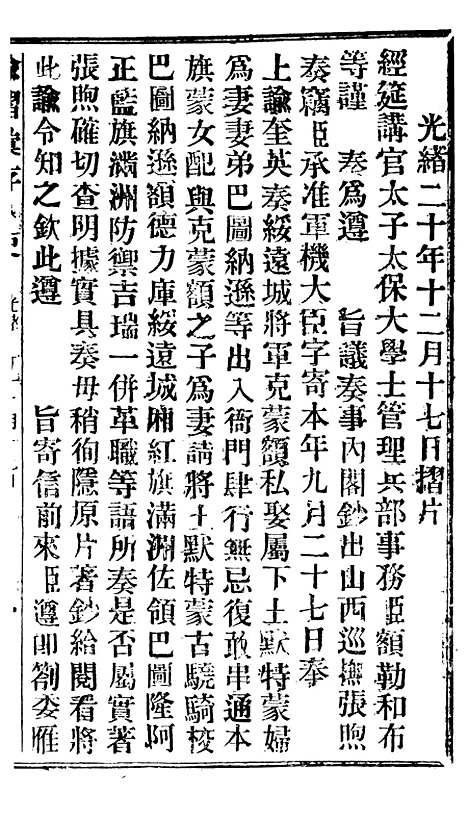 光緒二十年十二月十七日摺片
經筵講官太子太保大學士管理兵部事務臣額勒和布
等謹　奏爲遵　旨議奏事內閣鈔出山西巡撫張煦
奏竊臣承准軍機大臣字寄本年九月二十七日奉
上諭奎英奏綏遠城將軍克蒙額私娶屬下土默特蒙婦
爲妻妻弟巴圖納遜等出入衙門肆行無忌復敢串通本
旗蒙女配與克蒙額之子爲妻請將土默特蒙古驍騎校
巴圖納遜額德力庫綏遠城廂紅旗滿洲佐領巴圖隆阿
正監旗滿洲防禦吉瑞一併革職等語所奏是否屬實著
張煦確切查明據實具奏毋稍徇隱原片著鈔給閱看將
此諭令知之欽此遵　旨寄信前來臣遵卽劄委雁